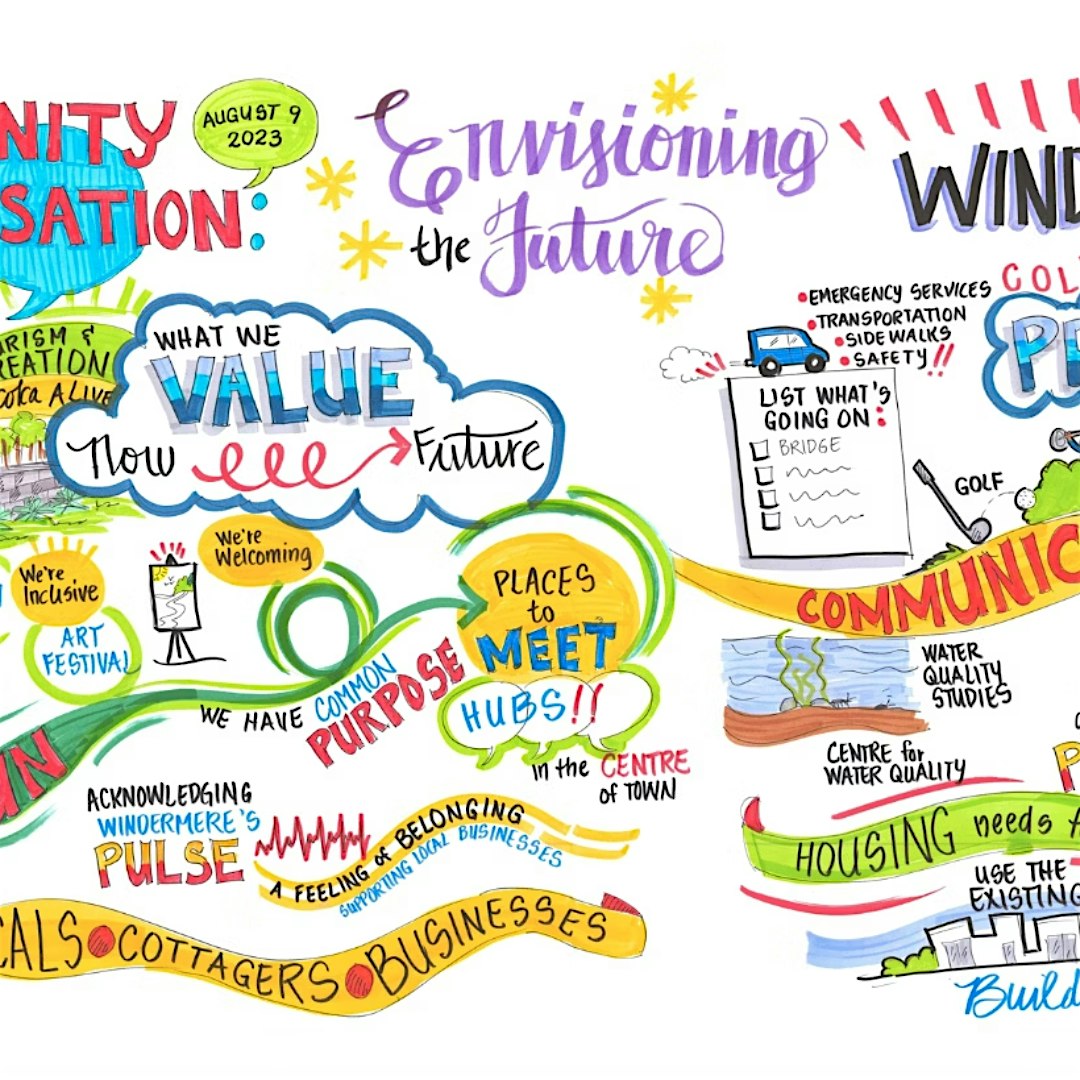 NITY
SATION:
AUGUST 9
2023
Envisioning
the Future
WIND
RISM &
REATION
oka ALIVE
WHAT WE
VALUE
Now Future
We're
Inclusive
ART
FESTIVAL
We're
Welcoming
PLACES
to
MEET
HUBS!!
in the CENTRE
of TOWN
WE HAVE COMMON
PURPOSE
UN
ACKNOWLEDGING
WINDERMERE'S
PULSE
A FEELING of BELONGING
SUPPORTING LOCAL BUSINESSES
CALS • COTTAGERS • BUSINESSES
• EMERGENCY SERVICES
• TRANSPORTATION
• SIDEWALKS
• SAFETY!!
COL
LIST WHAT'S
GOING ON:
BRIDGE
GOLF
COMMUNIC
WATER
QUALITY
STUDIES
CENTRE for
WATER QUALITY
HOUSING needs
USE THE
EXISTING
Build